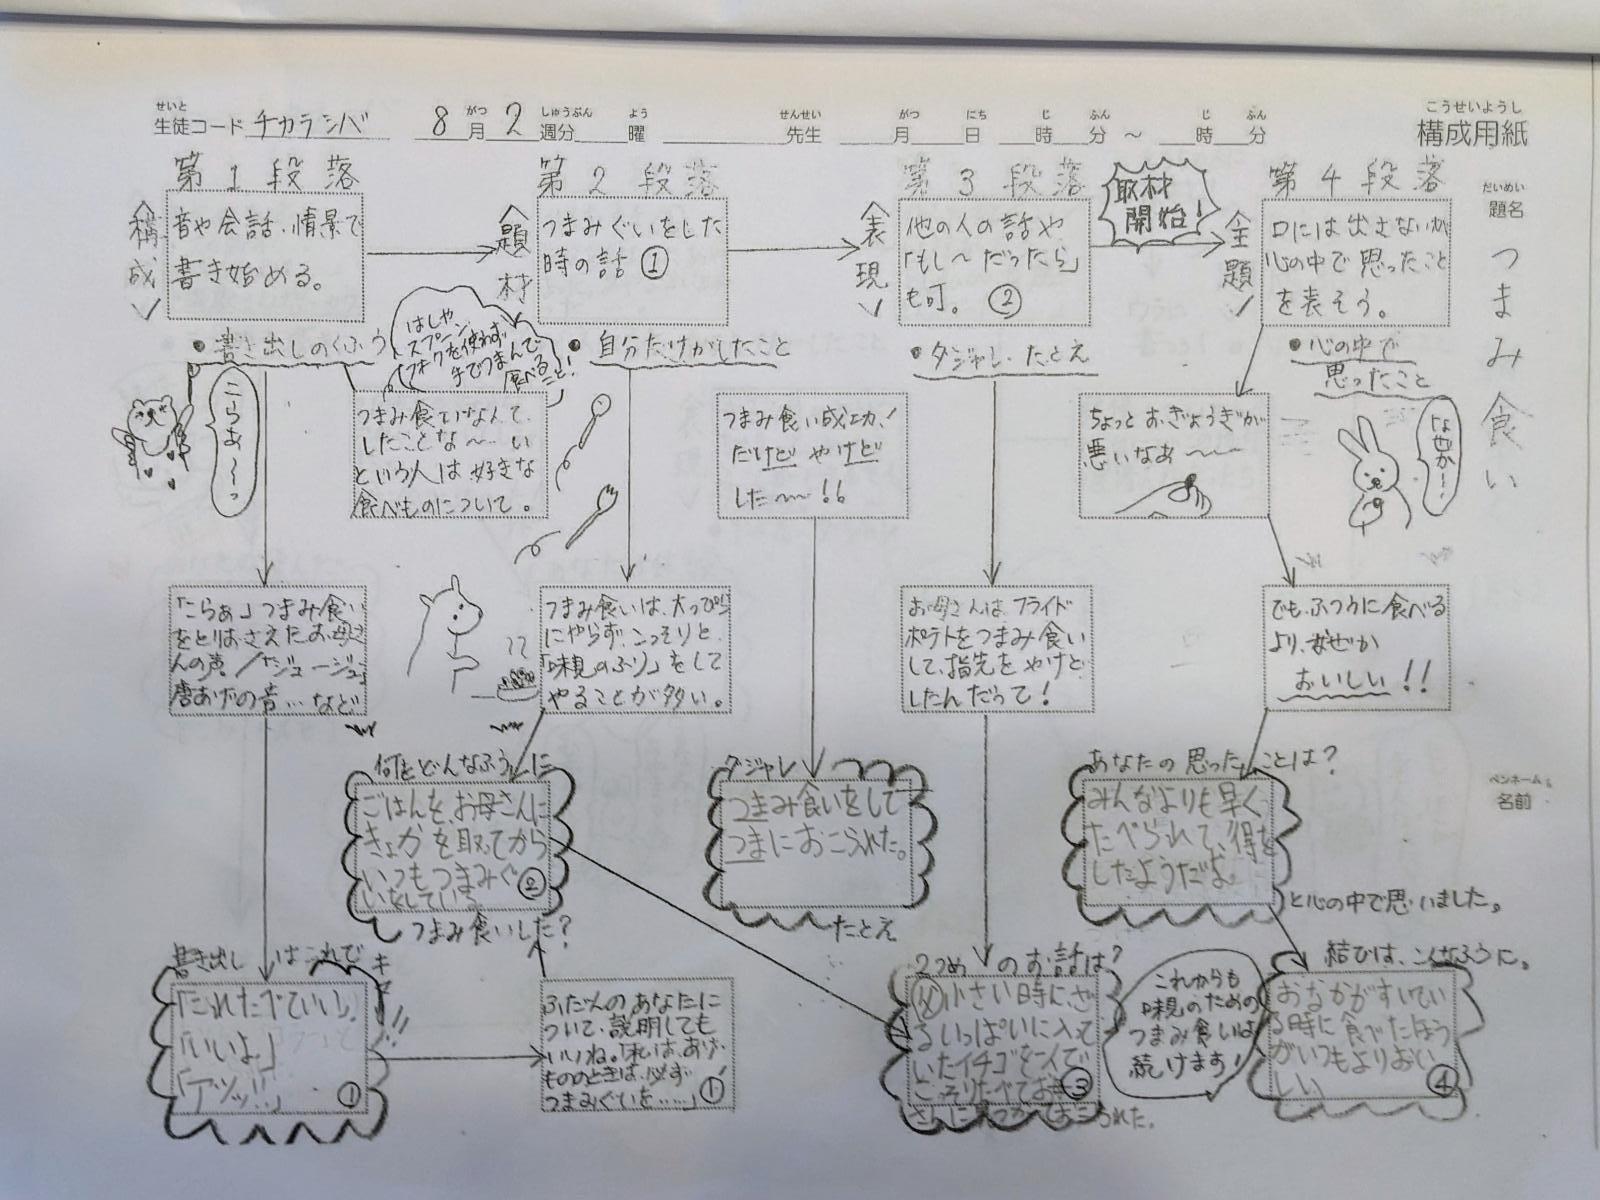 せいと
生徒コード チカラシバ
がつ しゅうぶん よう
8月2週分 曜
せんせい
先生
がつ にち じ ふん じ ふん
月 日 時 分 ～ 時 分
こうせいようし
構成用紙
だいめい
題名
つまみ食い
ペンネーム
名前
第1段落
〈構成〉
音や会話、情景で
書き始める。
・書き出しのくふう
こらぁ～っ
つまみ食いなんて、
したことな～い
という人は好きな
食べものについて。
はしや
スプーン
フォークを使わず
手でつまんで
食べる
こと!
「こらぁ」つまみ食い
をとりおさえたお母さ
んの声/「ジュージュー」
唐あげの音…など
書き出しはこれで
キマ
!!
「これたべていい」
「いいよ」
「アツッ!!」
①
第2段落
〈題材〉
つまみぐいをした
時の話 ①
・自分だけがしたこと
つまみ食いは、大っぴら
にやらず、こっそりと、
「味見のふり」をして
やることが多い。
何をどんなふうに
ごはんを、お母さんに
きょかを取ってから
いつもつまみぐ
いをしている。
②
つまみ食いした?
ふだんのあなたに
ついて、説明しても
いいね。「私は、あげ
もののときは、必ず
つまみぐいを……」
①
第3段落
〈表現〉
他の人の話や
「もし～だったら」
も可。 ②
・ダジャレ・たとえ
つまみ食い成功!
だけど やけど
した～～!!
お母さんは、フライド
ポテトをつまみ食い
して、指先をやけど
したんだって!
ダジャレ
つまみ食いをして
つまにおこられた。
たとえ
2つめのお話は?
父小さい時に、ざ
るいっぱいに入って
いたイチゴを一人で
こっそりたべてお
③
さんに見つかっておこられた。
取材
開始!
第4段落
〈主題〉
口には出さないが
心の中で思ったこと
を表そう。
・心の中で
思ったこと
ちょっとおぎょうぎが
悪いなあ～～
なぜか…
でも、ふつうに食べる
より、なぜか
おいしい!!
あなたの思ったことは?
みんなよりも早く
たべられて、得を
したようだよ。
と心の中で思いました。
これからも
味見のための
つまみ食いは
続けます!
結びは、こんなふうに。
おなかがすいてい
る時に食べたほう
がいつもよりおい
しい
④